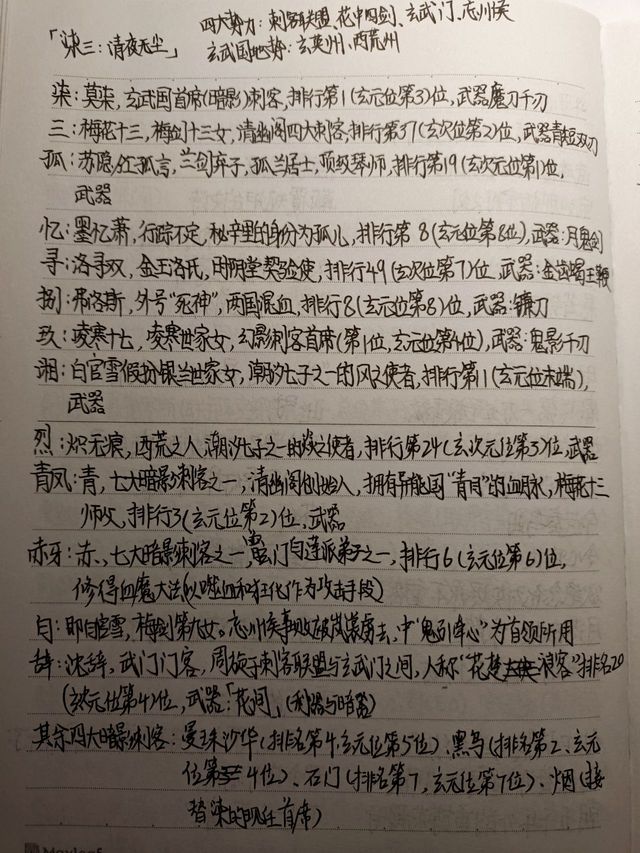 四大势力:刺客联盟、花中四剑、玄武门、忘州侯
「柒三:清夜无尘」
玄武国地势:玄英州、西荒州
柒:莫柒,玄武国首席(暗影)刺客,排行第1(玄元位第3)位,武器魔刀千刃
三:梅花十三,梅剑十三女,清幽阁四大刺客,排行第37(玄次位第2)位,武器青短双刃
孤:苏隐,红孤言,兰剑弃子,孤兰居士,顶级琴师,排行第19(玄次元位第1)位,
武器
忆:墨忆萧,行踪不定,秘辛里的身份为孤儿,排行第8(玄元位第8位),武器:月鬼剑
寻:洛寻双,金玉洛氏,阴堂契验使,排行49(玄次位第7)位,武器:金齿蝎王鞭
捌:弗洛斯,外号"死神",两国混血,排行8(玄元位第8)位,武器:镰刀
玖:凌寒十七,凌寒世家女,幻影刺客首席(第1位,玄元位第4位),武器:鬼影千刃
湘:白官雪假扮银兰世家女,潮汐七子之一的风之使者,排行第11(玄元位末端),
武器
烈:炽无痕,西荒之人,潮汐七子之一的炎之使者,排行第24(玄次元位第3)位,武器
青凤:青,七大暗影刺客之一,清幽阁创始人,拥有异能国"青目"的血脉,梅花十三
师父,排行3(玄元位第2)位,武器
赤牙:赤,七大暗影刺客之一,门白莲派弟子之一,排行6(玄元位第6)位,
修得血魔大法(以噬血和狂化作为攻击手段)
白:即白官雪,梅剑第九女。忘州侯事败被岚裳虏去,中"鬼引牵心"为首领所用
辞:沈辞,武门门客,周旋于刺客联盟与玄武门之间,人称"花楚浪客"排名20
(次元位第4)位,武器:「花间」(利器与暗器)
其余四大暗影刺客:曼珠沙华(排名第4,玄元位第5位)、黑鸟(排名第2、玄元
位第4位)、石门(排名第7,玄元位第7位)、烟(接
替柒的现任首席)